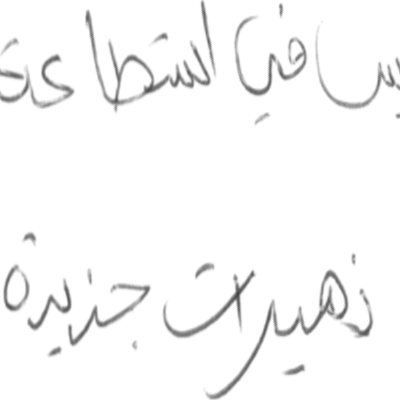 يس في استطاعة
زهيرات جديدة